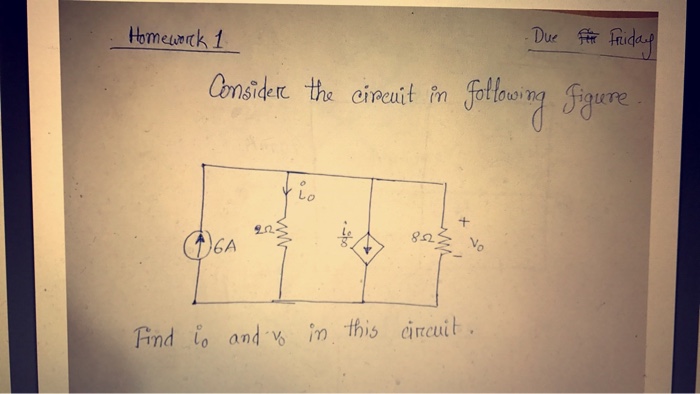 Homework 1
Due Friday
Consider the circuit in following figure.
i₀
6A
2Ω
i₀/8
8Ω
+
V₀
-
Find i₀ and v₀ in this circuit.